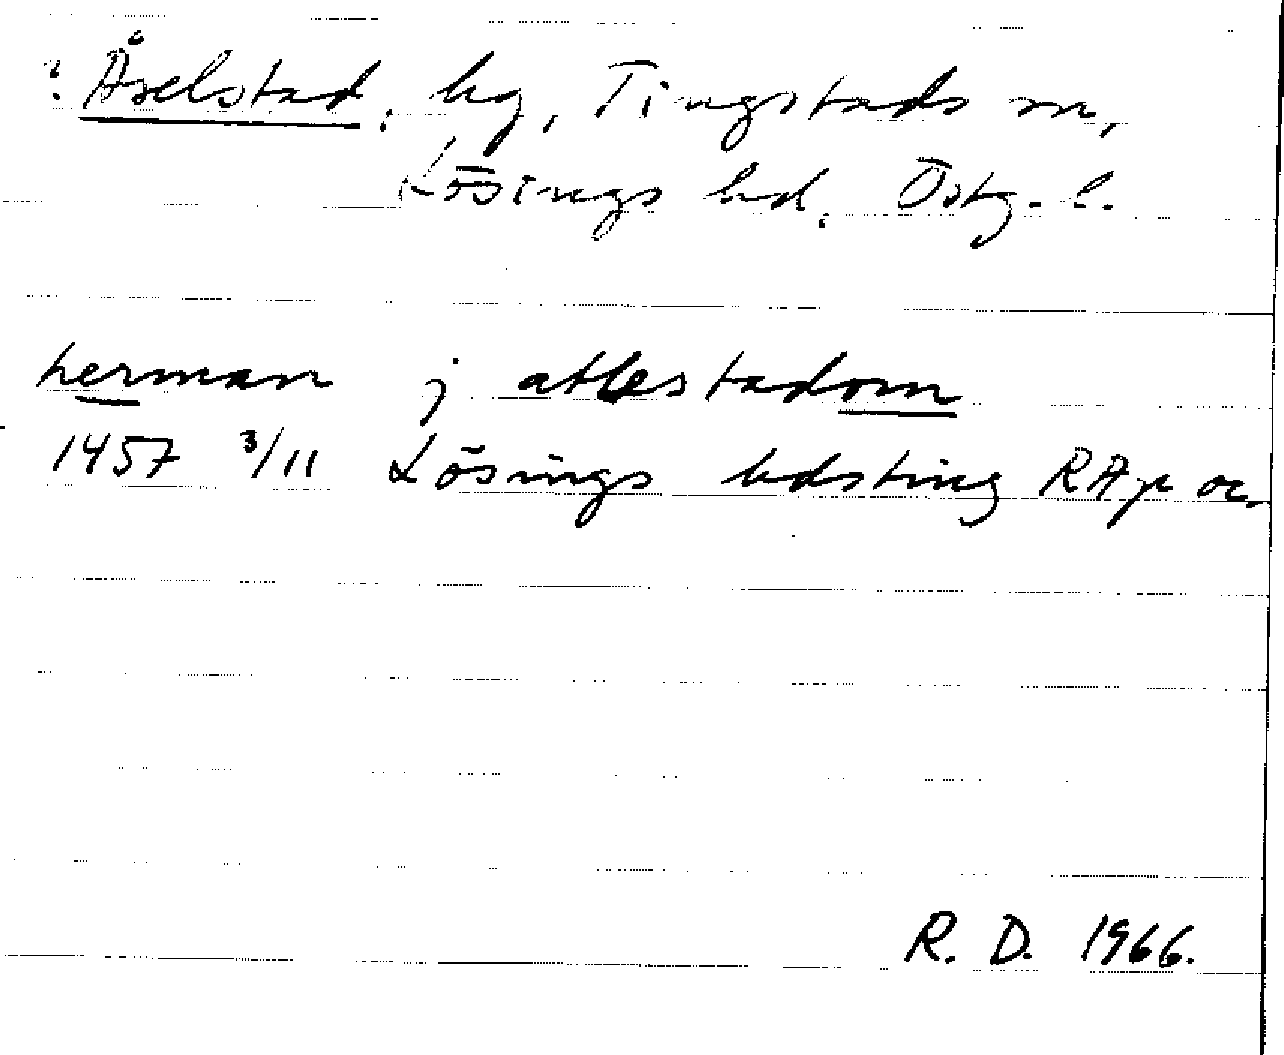 ? Åselstad, by, Tingstads sn,
Lösings hd, Östg. l.
herman j atlestadom
1457 3/11 Lösings hdsting RAp or.
R. D. 1966.